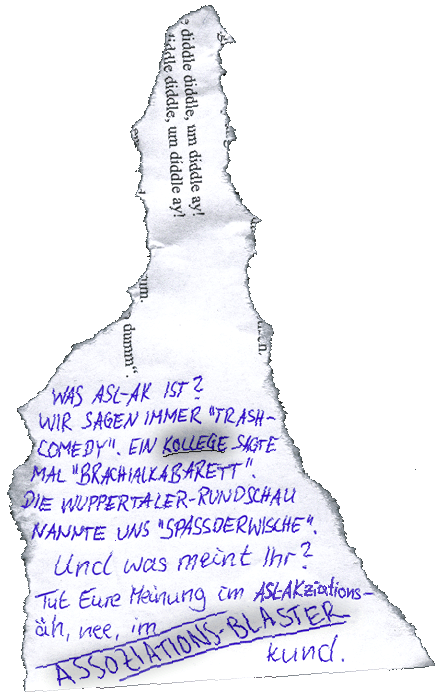 e diddle diddle, um diddle ay!
iddle diddle, um diddle ay!
um.
dumm".
en.
WAS ASL-AK IST?
WIR SAGEN IMMER "TRASH-
COMEDY". EIN KOLLEGE SAGTE
MAL "BRACHIALKABARETT".
DIE WUPPERTALER-RUNDSCHAU
NANNTE UNS "SPASSDERWISCHE".
Und was meint Ihr?
Tut Eure Meinung im ASLAKziations-
äh, nee, im
ASSOZIATIONS-BLASTER
kund.